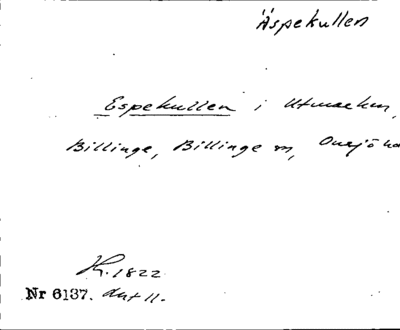 Äspekullen
Espekullen i Utmarken,
Billinge, Billinge sn, Onsjö
K. 1822
Nr 6137. Akt 11.